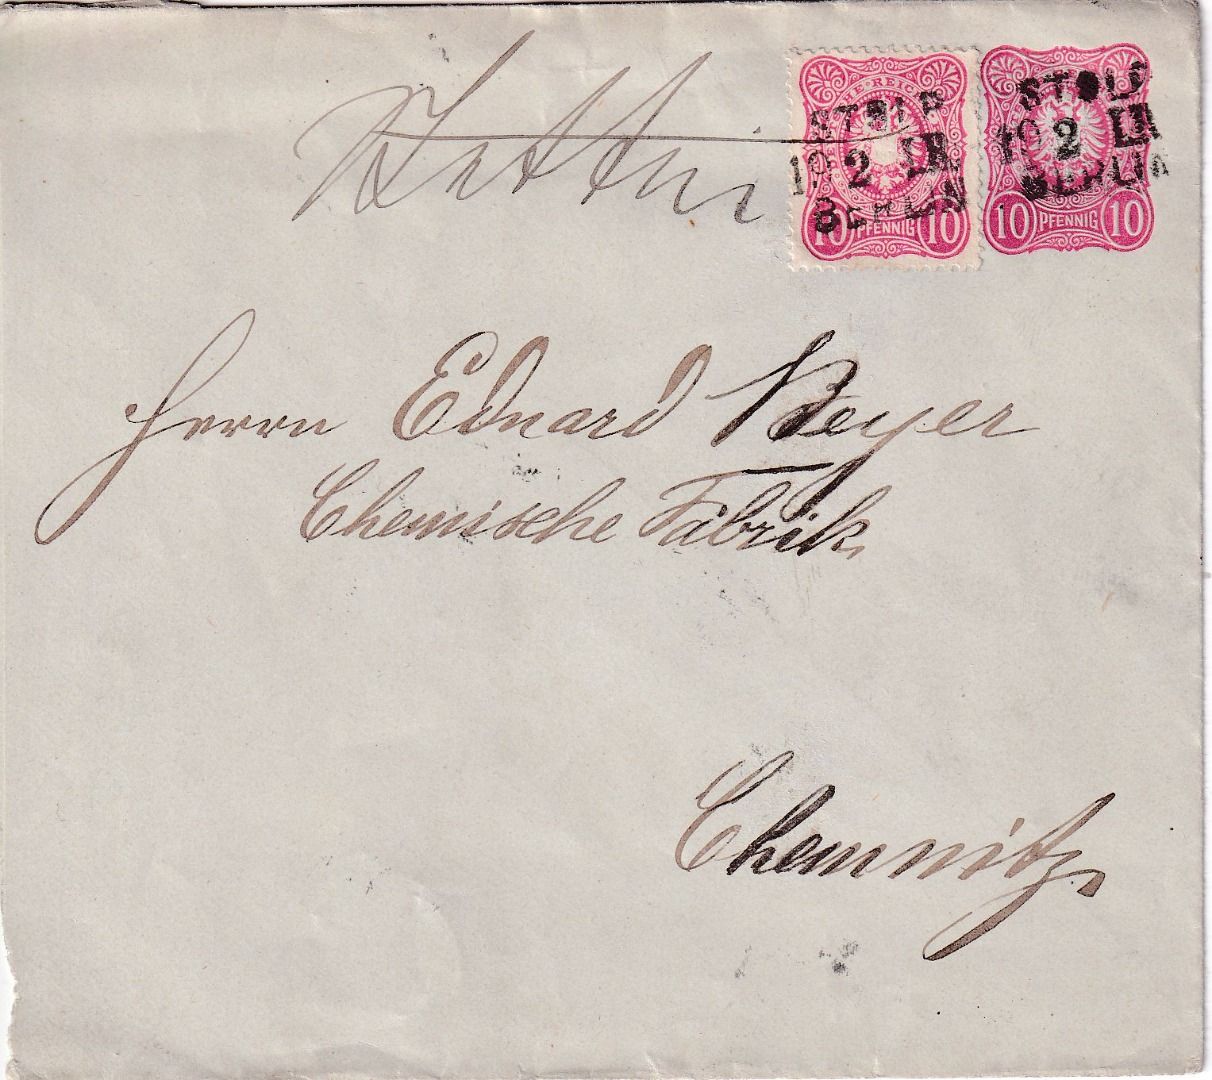 DEUTSCHE REICHSPOST
10 PFENNIG 10
10 PFENNIG 10
STOLP
10 2 III
BERLIN
STOLP
10 2 III
BERLIN
Herrn Eduard Beyer
Chemische Fabrik
Chemnitz